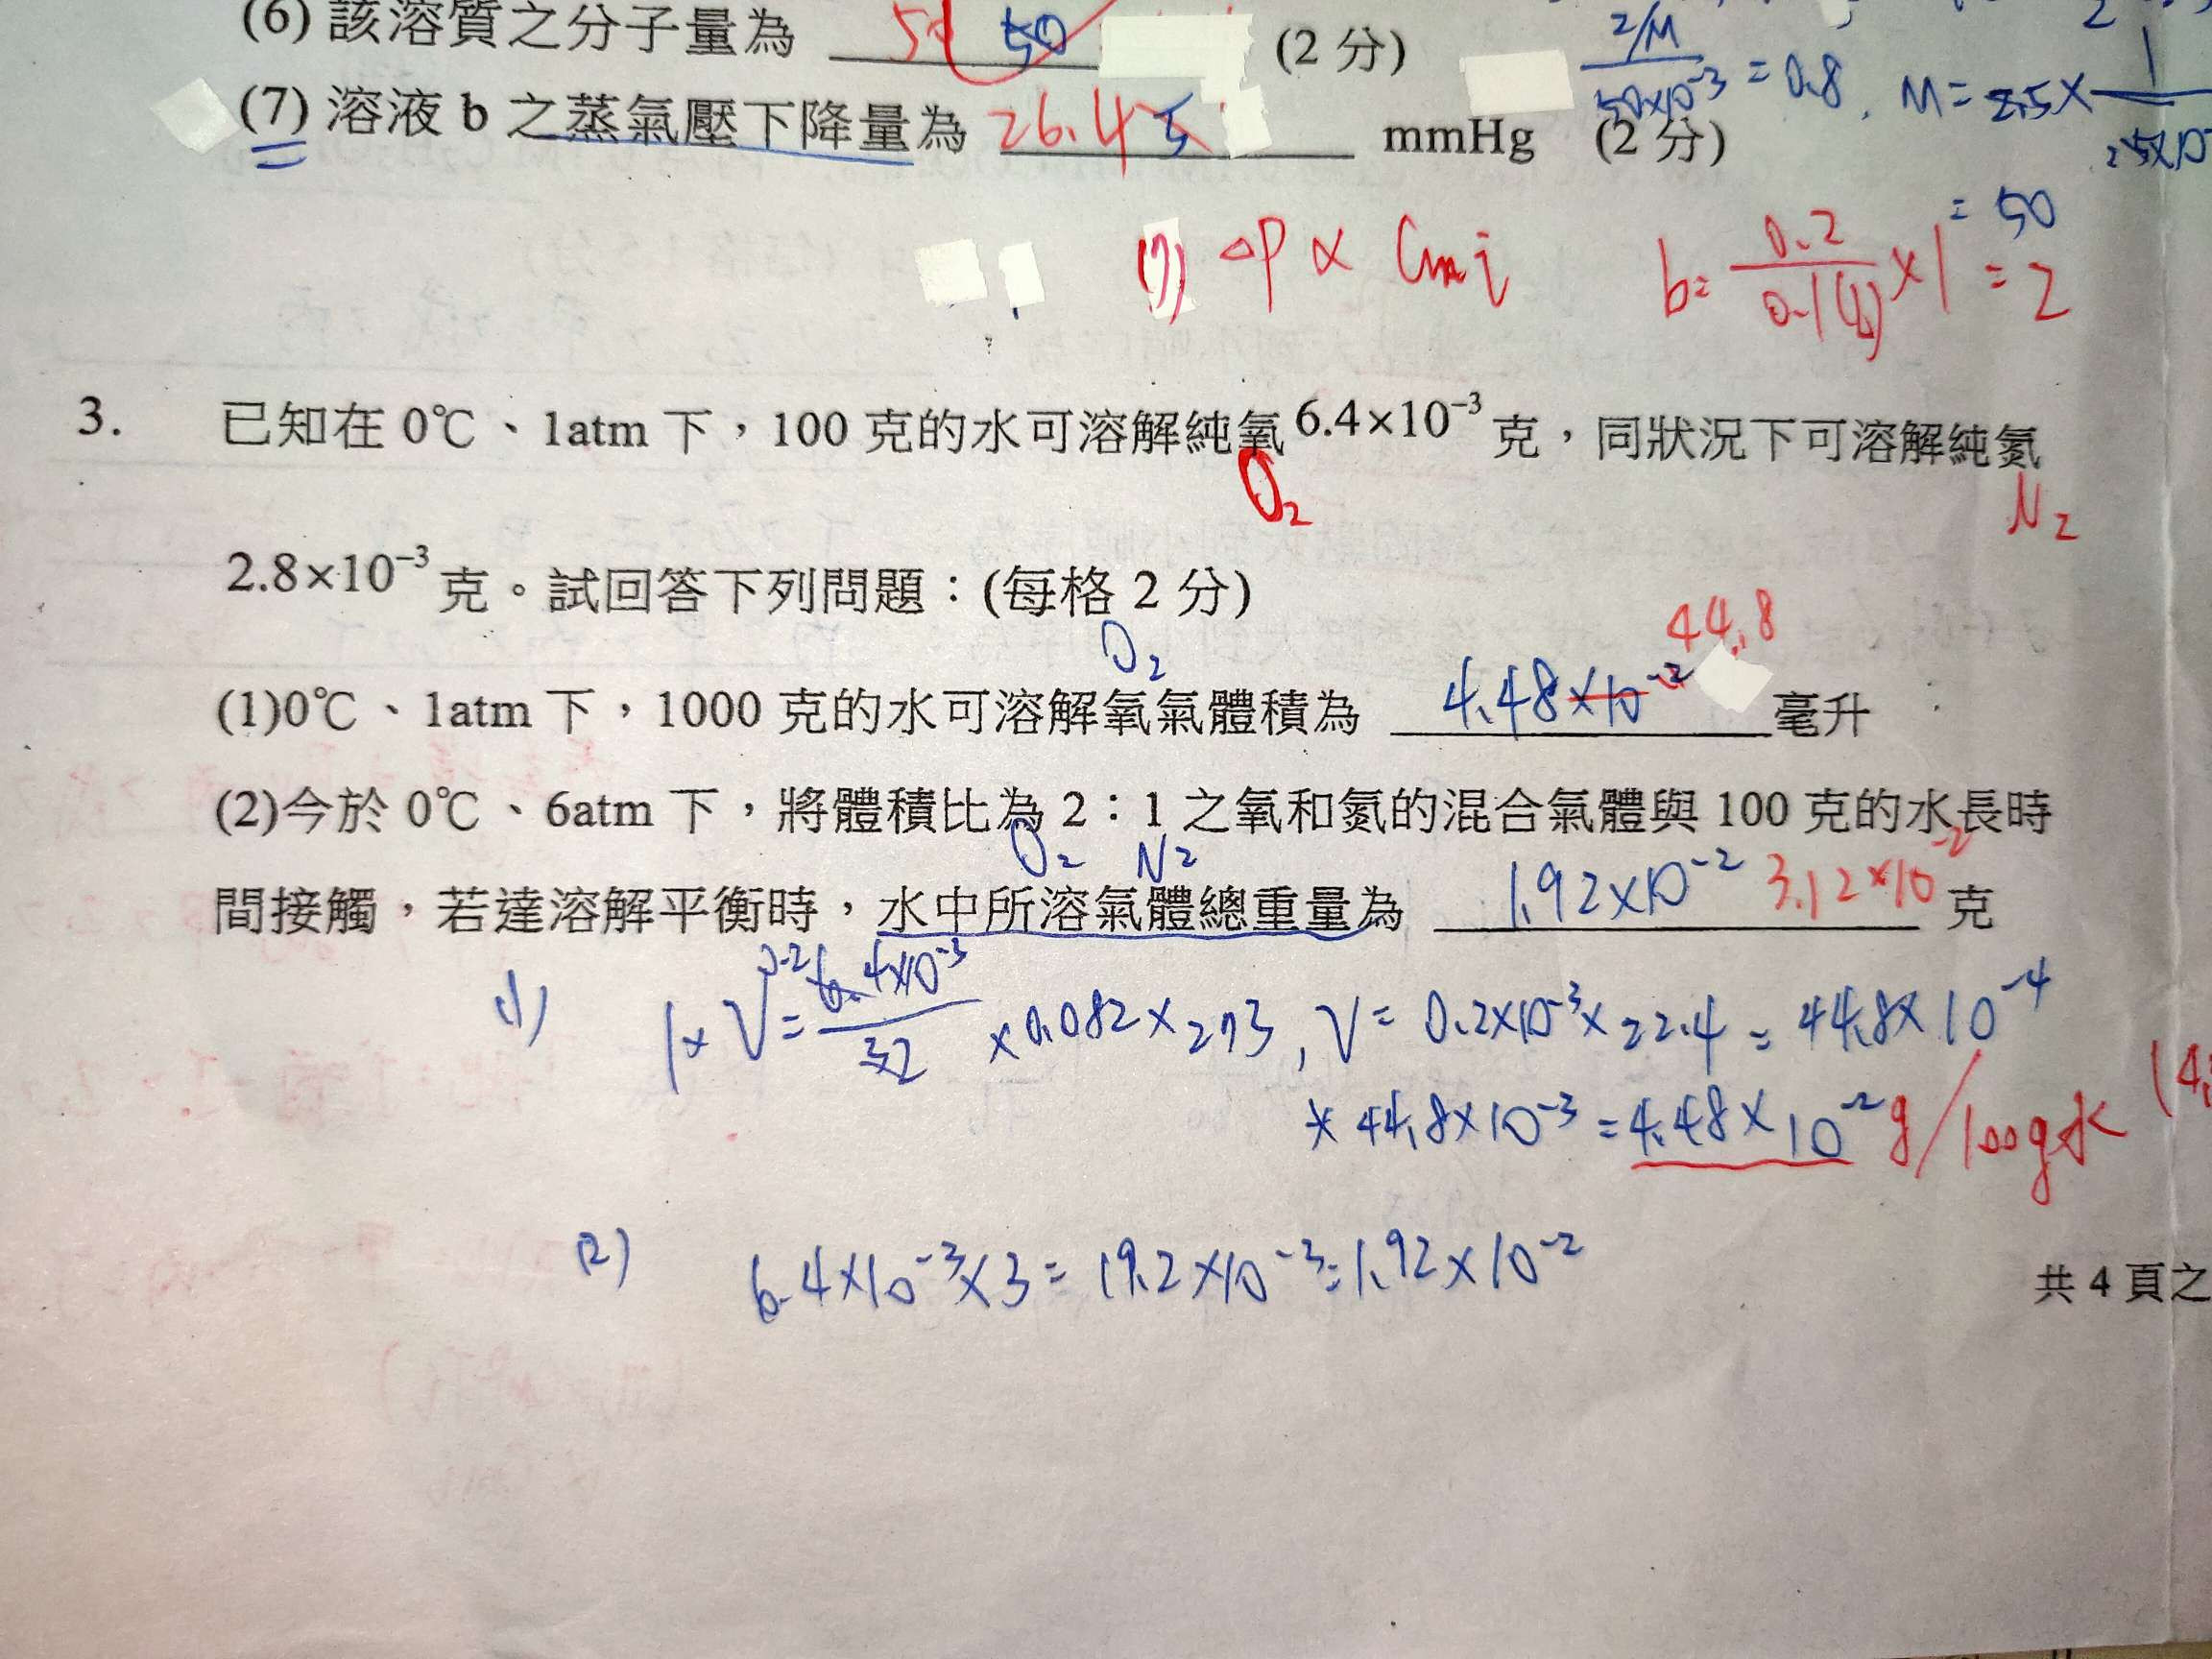 (6) 該溶質之分子量為 50 (2 分)
2/M
50×10⁻³ = 0.8, M = 2.5×
= 50
(7) 溶液 b 之蒸氣壓下降量為 26.4 5 mmHg (2 分)
(7) ΔP ∝ Cm i b= 0.2/0.1(4) ×1 = 2
3. 已知在 0℃、1atm 下，100 克的水可溶解純氧 6.4×10⁻³ 克，同狀況下可溶解純氮
O₂ N₂
2.8×10⁻³ 克。試回答下列問題：(每格 2 分)
O₂ 44.8
(1)0℃、1atm 下，1000 克的水可溶解氧氣體積為 4.48×10⁻² 毫升
(2)今於 0℃、6atm 下，將體積比為 2：1 之氧和氮的混合氣體與 100 克的水長時
O₂ N₂
間接觸，若達溶解平衡時，水中所溶氣體總重量為 1.92×10⁻² 3.12×10⁻² 克
(1) 1×V = 6.4×10⁻³/32 ×0.082×273, V = 0.2×10⁻³×22.4 = 44.8×10⁻⁴
44.8×10⁻³ = 4.48×10⁻² g/100g水
(2) 6.4×10⁻³×3 = 19.2×10⁻³ = 1.92×10⁻²
共 4 頁之